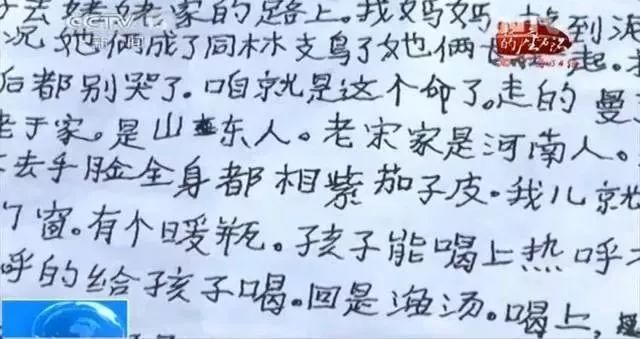 CCTV
新闻
的座标
去姥姥家的路上。我妈妈 到
况她俩成了同林支鸟了她俩 起。
后都别哭了。咱就是这个命了。走的曼
老于家。是山东人。老宋家是河南人。
去手脸全身都相紫茄子皮。我儿就
窗。有个暖瓶。孩子能喝上热呼
呼的给孩子喝。回是渔汤。喝上,